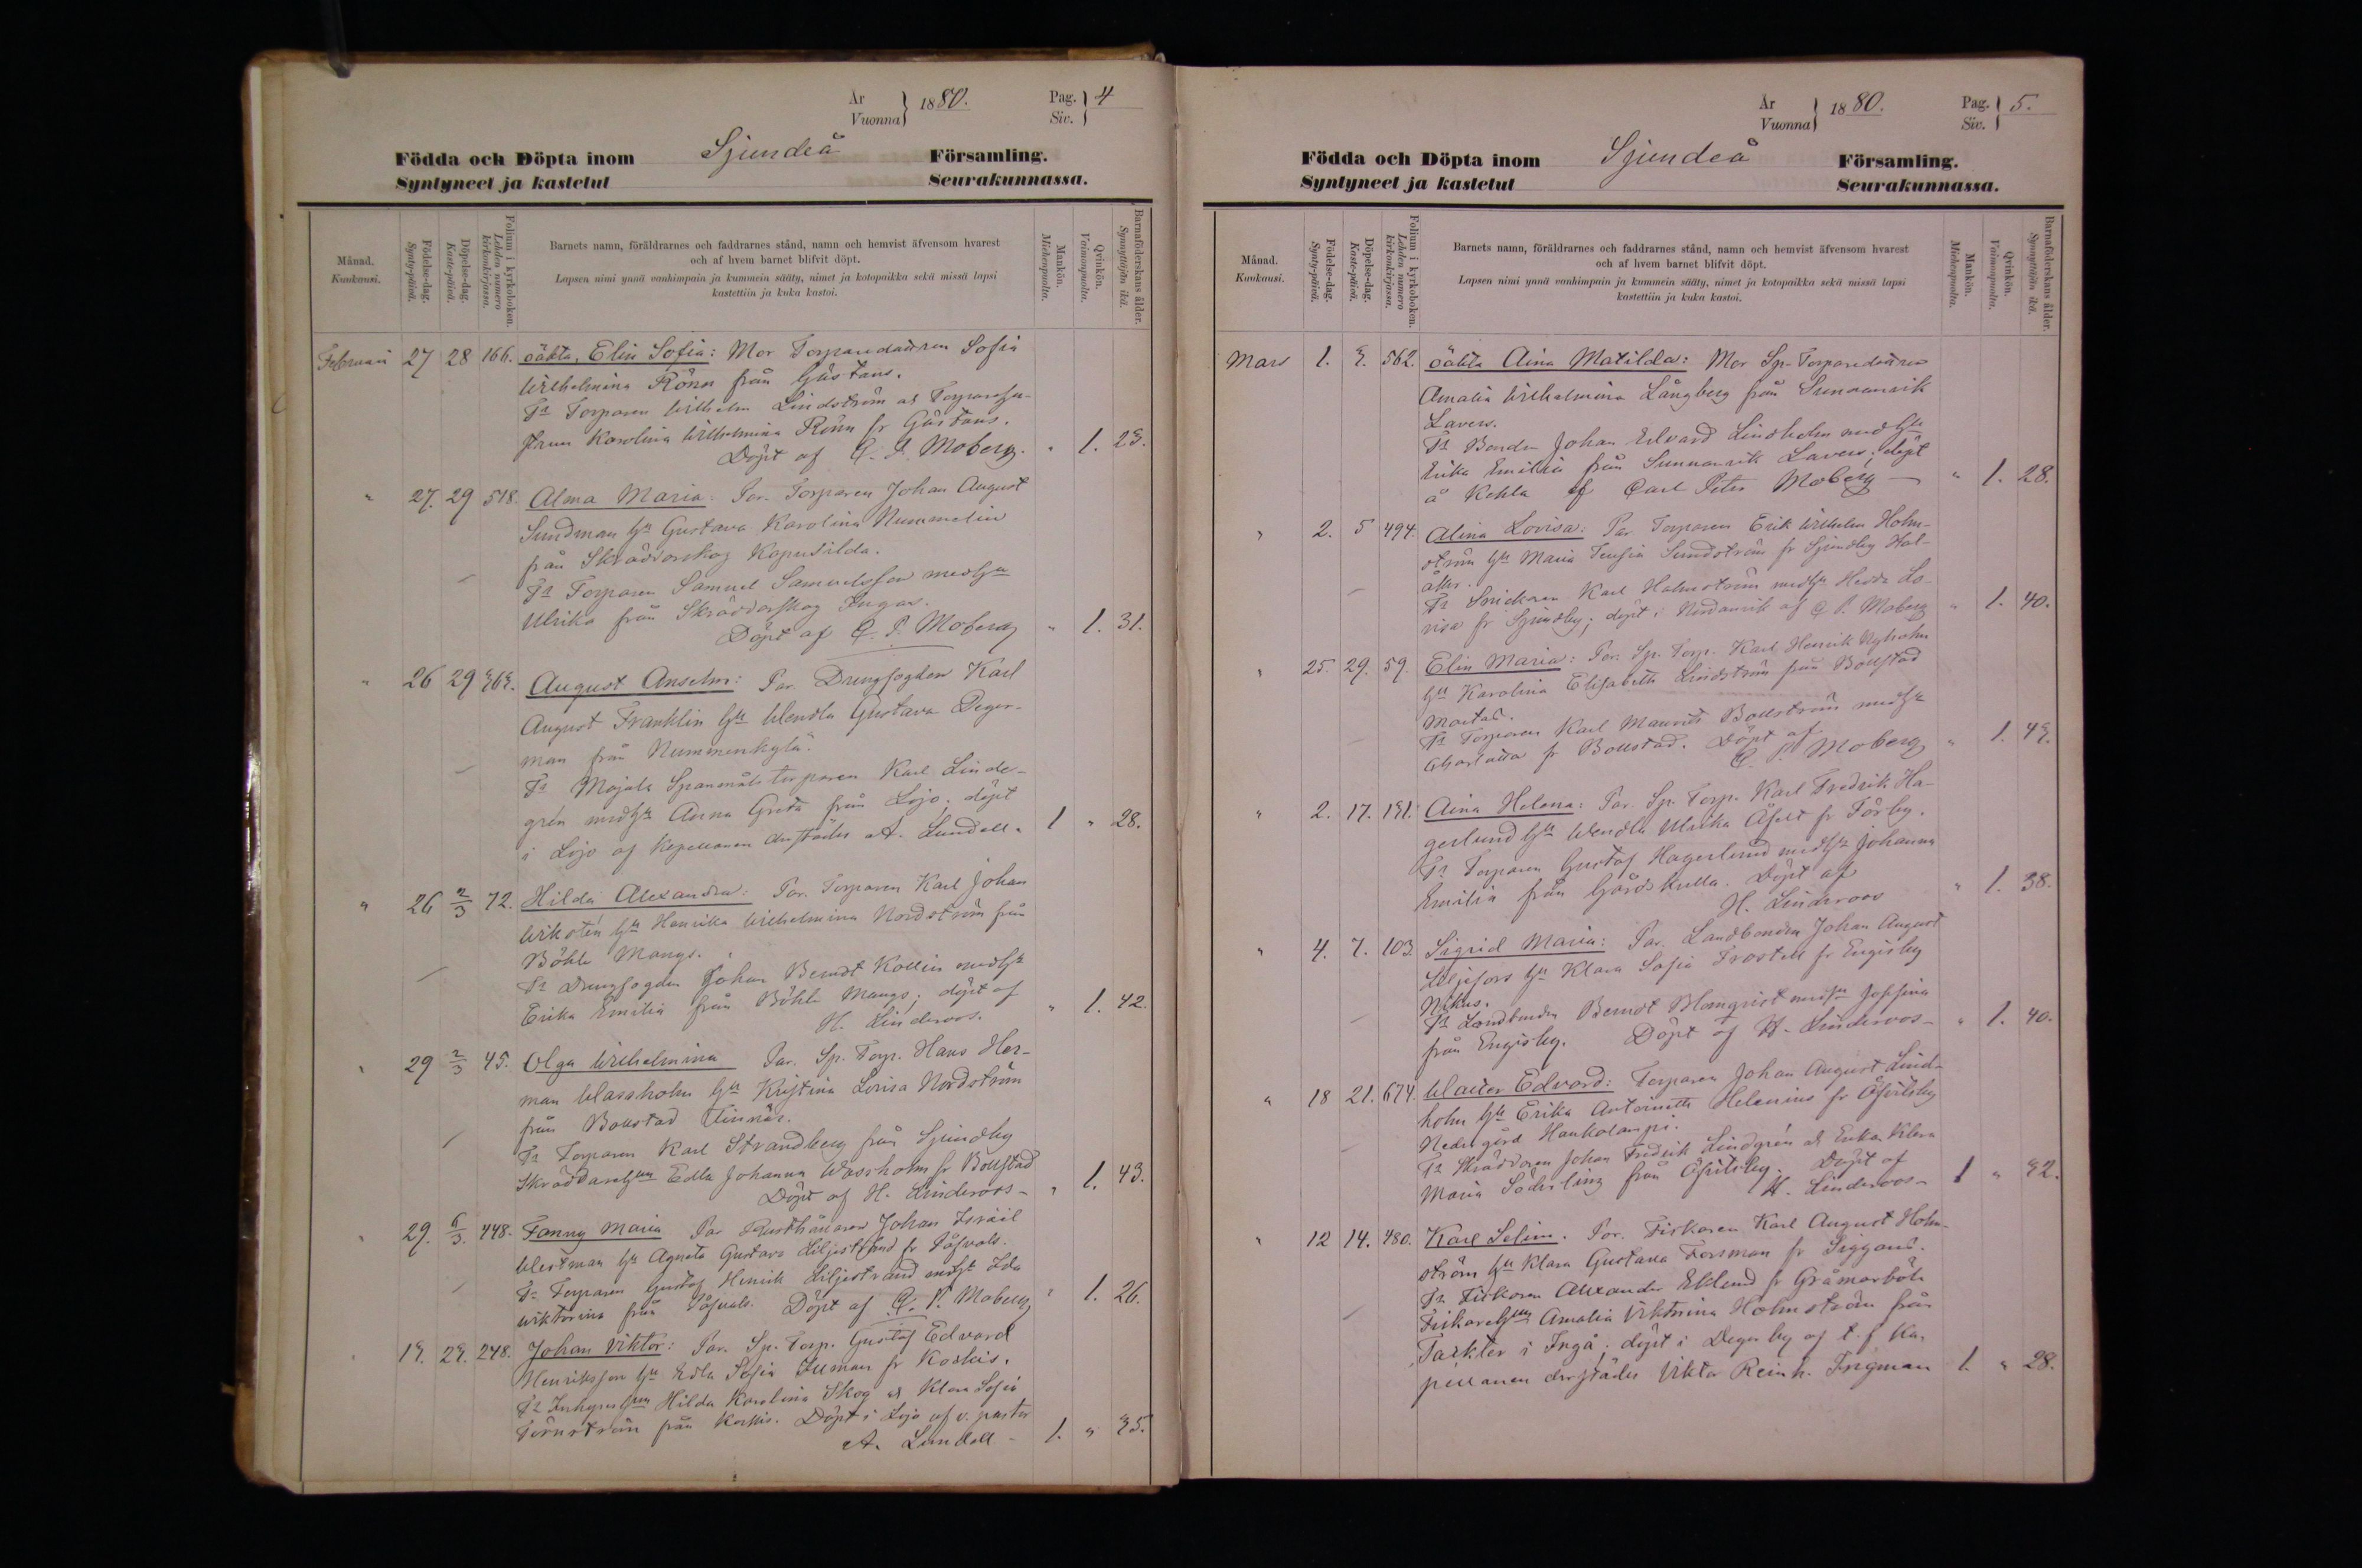 År
Vuonna } 1880.
Pag.
Siv. } 4
Födda och Döpta inom Sjundeå Församling.
Syntyneet ja kastetut Seurakunnassa.
Månad.
Kuukausi.
Födelse-dag.
Synty-päivä.
Döpelse-dag.
Kaste-päivä.
Folium i kyrkoboken.
Lehden numero
kirkonkirjassa.
Barnets namn, föräldrarnes och faddrarnes stånd, namn och hemvist äfvensom hvarest
och af hvem barnet blifvit döpt.
Lapsen nimi ynnä vanhimpain ja kummein sääty, nimet ja kotopaikka sekä missä lapsi
kastettiin ja kuka kastoi.
Mankön.
Miehenpuolta.
Qvinkön.
Vaimonpuolta.
Barnaföderskans ålder.
Synnyttäjän ikä.
Februari 27 28 166. oäkta, Elin Sofia: Mor Torparedottren Sofia
Wilhelmina Rönn från Gästans.
Fr Torparen Wilhelm Lindström
Karolina Wilhelmina Rönn fr Gästans.
Döpt af C. P. Moberg. " 1. 23.
" 27. 29 518. Alma Maria. Par. Torparen Johan August
Sundman hu Gustava Karolina Nummelin
från Skräddarskog Kapusilda.
Fr Torparen Samuel Samuelsson med hu
Ulrika från Skräddarskog Ingas.
Döpt af C. P. Moberg " 1. 31.
" 26 29 August Anselm: Par. Drengfogden Karl
August Franklin hu Wendla Gustava Deger-
man från Nummenkylä.
Fr Majala Spanmåls torparen Karl Linde-
grén med hu Anna Greta från Lojo. döpt
i Lojo af Kapellanen derstädes A. Lundell. 1 " 28.
" 26 2/3 72. Hilda Alexandra: Par. Torparen Karl Johan
Wikstén hu Henrika Wilhelmina Nordström från
Böhle Mangs.
Fr Drengfogden Johan Berndt Kollin med hu
Erika Emilia från Böhle Mangs; döpt af
H. Linderoos. " 1. 42.
" 29 2/3 45. Olga Wilhelmina Par. Sp. Torp. Hans Her-
man Wassholm hu Kristina Lovisa Nordström
från Bollstad Finnäs.
Fr Torparen Karl Strandberg från Sjundby
Edla Johanna Wassholm fr Bollstad
Döpt af H. Linderoos - " 1. 43.
" 29. 6/3. 448. Fanny Maria Par Rusthållaren Johan Israël
Westman hu Agneta Gustava Liljestrand fr
Fr Torparen Gustaf Henrik Liljestrand med hu Ida
Wiktorina från Döpt af C. P. Moberg " 1. 26.
248. Johan Viktor: Par. Sp. Torp. Gustaf Edvard
Henriksson hu Edla Sofia Illman fr Korkis.
Hilda Karolina Skog Klara Sofia
Törnström från Korkis. Döpt i Lojo af v. pastor
A. Lundell - 1. "
År
Vuonna } 1880.
Pag.
Siv. } 5.
Födda och Döpta inom Sjundeå Församling.
Syntyneet ja kastetut Seurakunnassa.
Månad.
Kuukausi.
Födelse-dag.
Synty-päivä.
Döpelse-dag.
Kaste-päivä.
Folium i kyrkoboken.
Lehden numero
kirkonkirjassa.
Barnets namn, föräldrarnes och faddrarnes stånd, namn och hemvist äfvensom hvarest
och af hvem barnet blifvit döpt.
Lapsen nimi ynnä vanhimpain ja kummein sääty, nimet ja kotopaikka sekä missä lapsi
kastettiin ja kuka kastoi.
Mankön.
Miehenpuolta.
Qvinkön.
Vaimonpuolta.
Barnaföderskans ålder.
Synnyttäjän ikä.
Mars 1. 562. oäkta Aina Matilda: Mor Sp. Torparedottren
Amalia Wilhelmina Långberg från Sunnanvik
Lavers.
Fr Bonden Johan Edvard Lindholm med hu
Erika Emilia från Sunnanvik Lavers; döpt
å Kehla af Carl Peter Moberg - " 1. 28.
" 2. 5 494. Alina Lovisa: Par Torparen Erik Wilhelm Holm-
ström hu Maria Sundström fr Sjundby
Fr Snickaren Karl Holmström med hu Hedda Lo-
visa fr Sjundby; döpt i Nordanvik af C P. Moberg " 1. 40.
" 25. 29. 59. Elin Maria: Par. Sp. Torp. Karl Henrik Nyholm
hu Karolina Elisabeth Lindström från Bollstad
Martas.
Fr Torparen Karl Maurits Bollström med hu
Charlotta fr Bollstad. Döpt af
C. P. Moberg " 1.
" 2. 17. 191. Aina Helena: Par. Sp. Torp. Karl Fredrik Ha-
gerlund hu Wendla Ulrika fr Törby.
Fr Torparen Gustaf Hagerlund med hu Johanna
Emilia från Gårdskulla. Döpt af
H. Linderoos " 1. 38.
" 4. 7. 103. Sigrid Maria: Par. Landbonden Johan August
Liljefors hu Klara Sofia Trostell fr Engisby
Nikus.
Fr Landbonden Berndt Blomqvist med hu Josefina
från Engisby. Döpt af H. Linderoos - " 1. 40.
" 18 21. 674. Walter Edvard: Torparen Johan August Lind-
holm hu Erika Antoinette Helenius fr
Nedergård Haukolampi.
Fr Skräddaren Johan Fredrik Lindgrén Erika Klara
Maria Söderling från Döpt af
H. Linderoos - 1 "
" 12 14. 480. Karl Selim. Par. Fiskaren Karl August Holm-
ström hu Klara Gustava Forsman fr Siggans.
Fr Fiskaren Alexander Eklund fr Gråmarböle
Amalia Viktorina Holmström från
i Ingå; döpt i Degerby af t. f. Ka-
pellanen derstädes Viktor Reinh. Ingman 1. " 28.